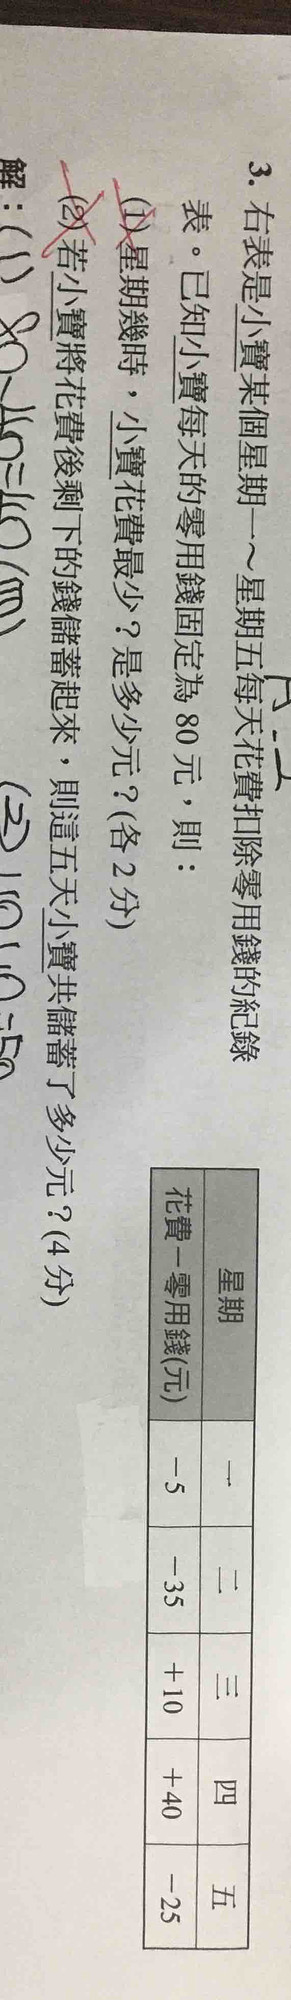 3. 右表是小寶某個星期一～星期五每天花費扣除零用錢的紀錄
表。已知小寶每天的零用錢固定為 80 元，則：
(1) 星期幾時，小寶花費最少？是多少元？(各 2 分)
(2) 若小寶將花費後剩下的錢儲蓄起來，則這五天小寶共儲蓄了多少元？(4 分)
星期 一 二 三 四 五
花費－零用錢(元) －5 －35 ＋10 ＋40 －25
解：(1) 80-40=40(元)
(2)